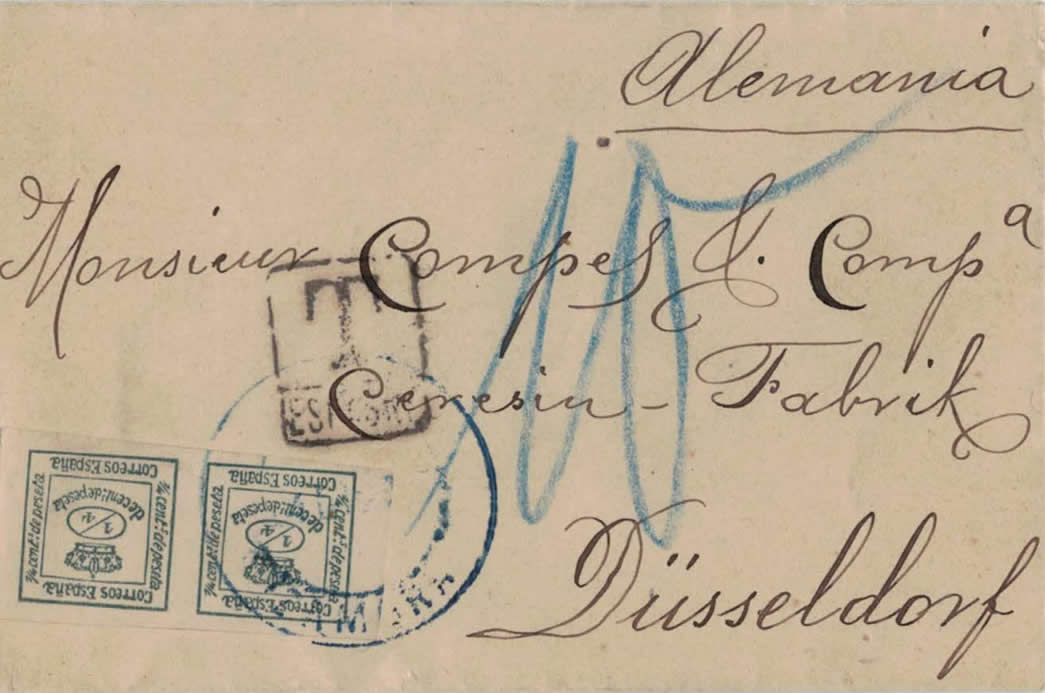 Alemania
Monsieur Compes & Compª
Ceresin-Fabrik
Düsseldorf
T
10
Correos España.
¼ cent.º de peseta
de cent.º de peseta
1/4
Correos España.
¼ cent.º de peseta
Correos España.
¼ cent.º de peseta
de cent.º de peseta
1/4
Correos España.
¼ cent.º de peseta